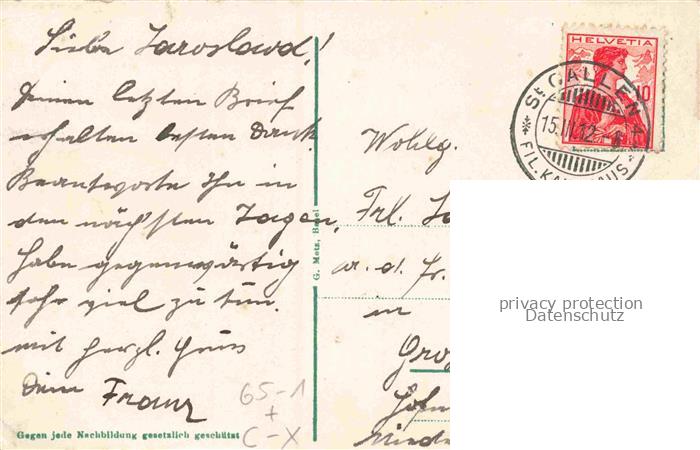 Liebe Jaroslawa!
Deinen letzten Brief
erhalten besten Dank.
Beantworte Ihn in
den nächsten Tagen,
habe gegenwärtig
sehr viel zu tun.
mit herzl. Gruss
Dein Franz
65-1
+
C-X
Gegen jede Nachbildung gesetzlich geschützt
G. Metz, Basel
HELVETIA
10
ST GALLEN
15. 12.-8
FIL. KAUFHAUS
Wohlg.
Frl.
in
privacy protection
Datenschutz